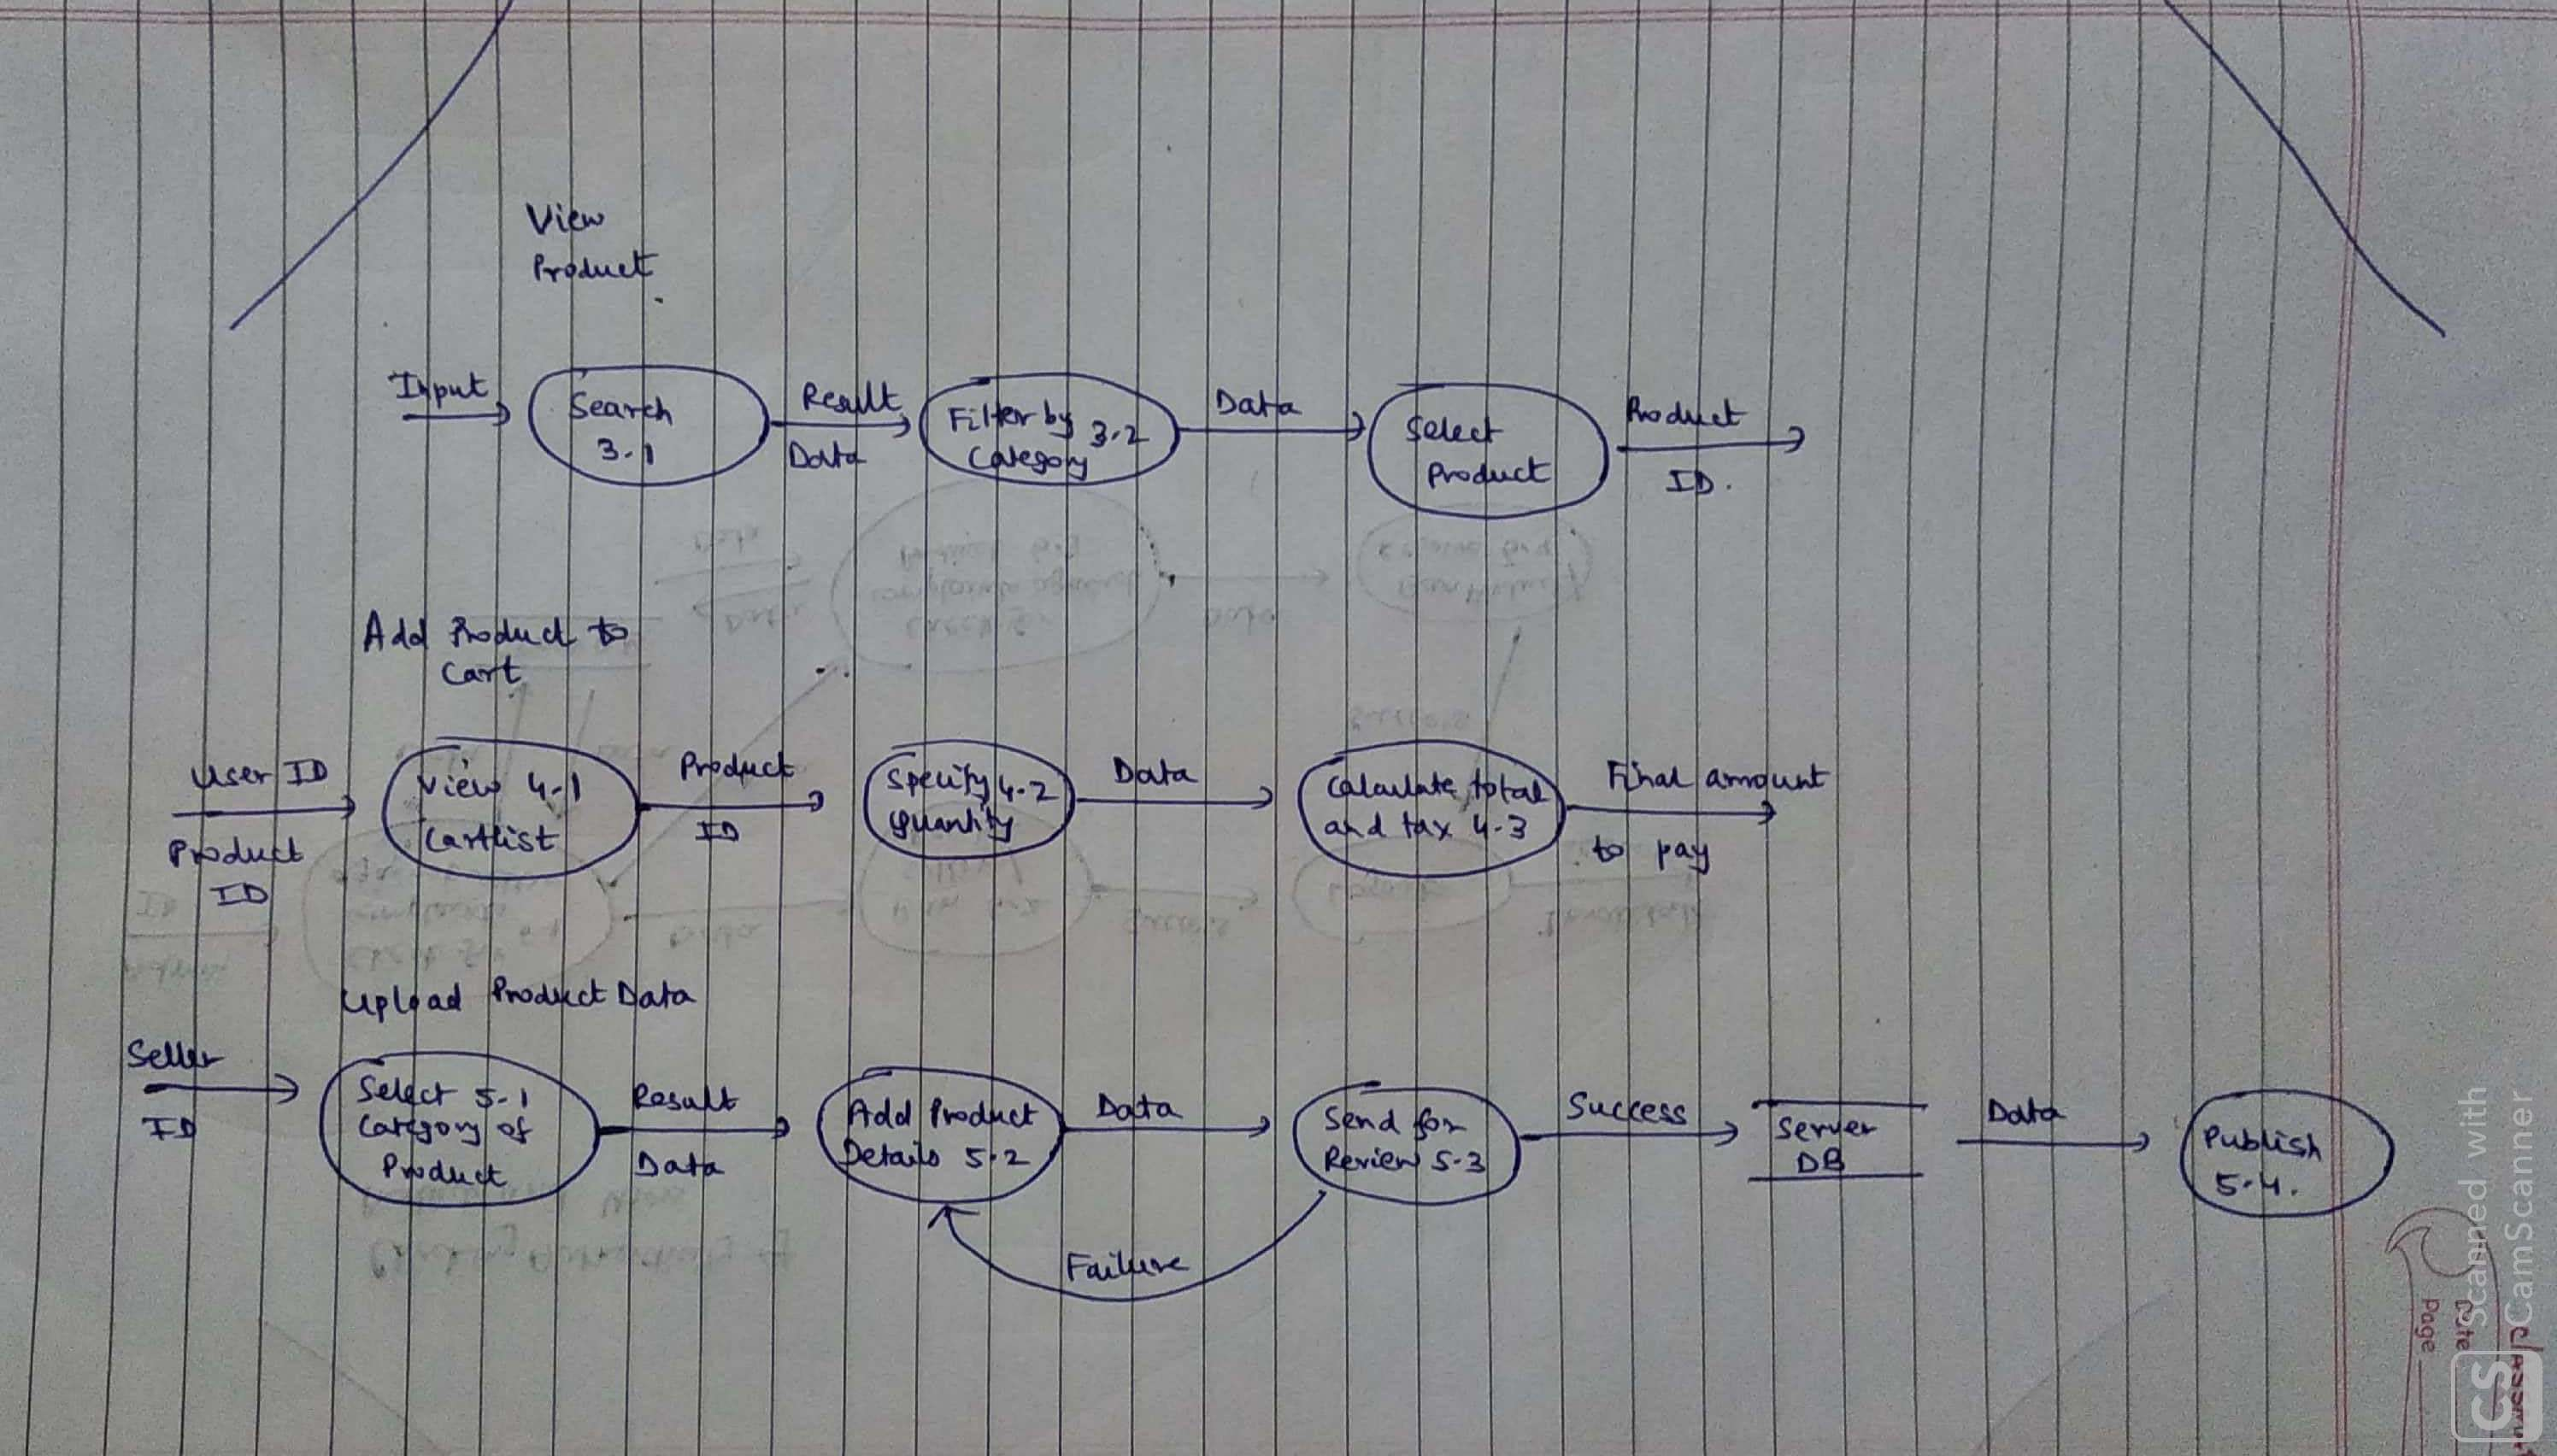 View
Product
Input
Search
3.1
Result
Data
Filter by 3.2
Category
Data
Select
Product
Product
ID.
Add Product to
Cart
User ID
Product
ID
View 4.1
Cartlist
Product
ID
Specify 4.2
quantity
Data
Calculate total
and tax 4.3
Final amount
to pay
Upload Product Data
Seller
ID
Select 5.1
Category of
Product
Result
Data
Add Product
Details 5.2
Data
Send for
Review 5.3
Success
Server
DB
Data
Publish
5.4.
Failure
Scanned with
CamScanner
CS
Date
Page